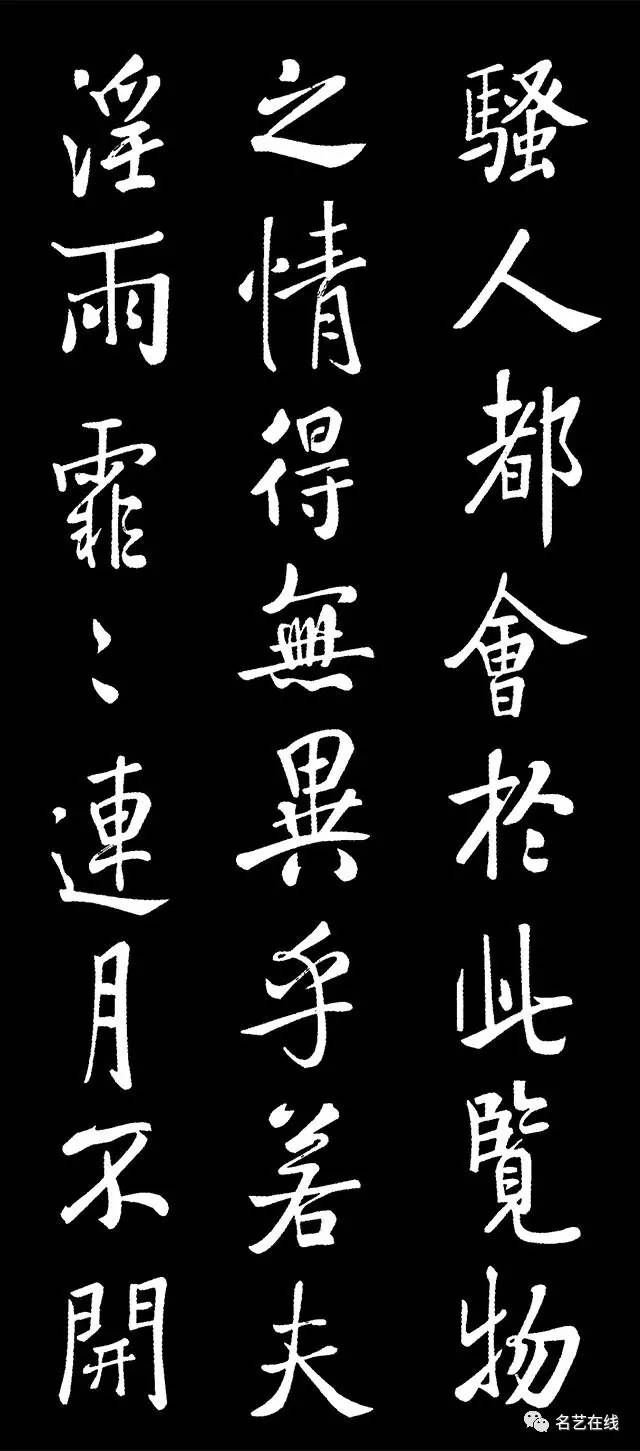 騷人都會於此覽物
之情得無異乎若夫
淫雨霏〻連月不開
名艺在线